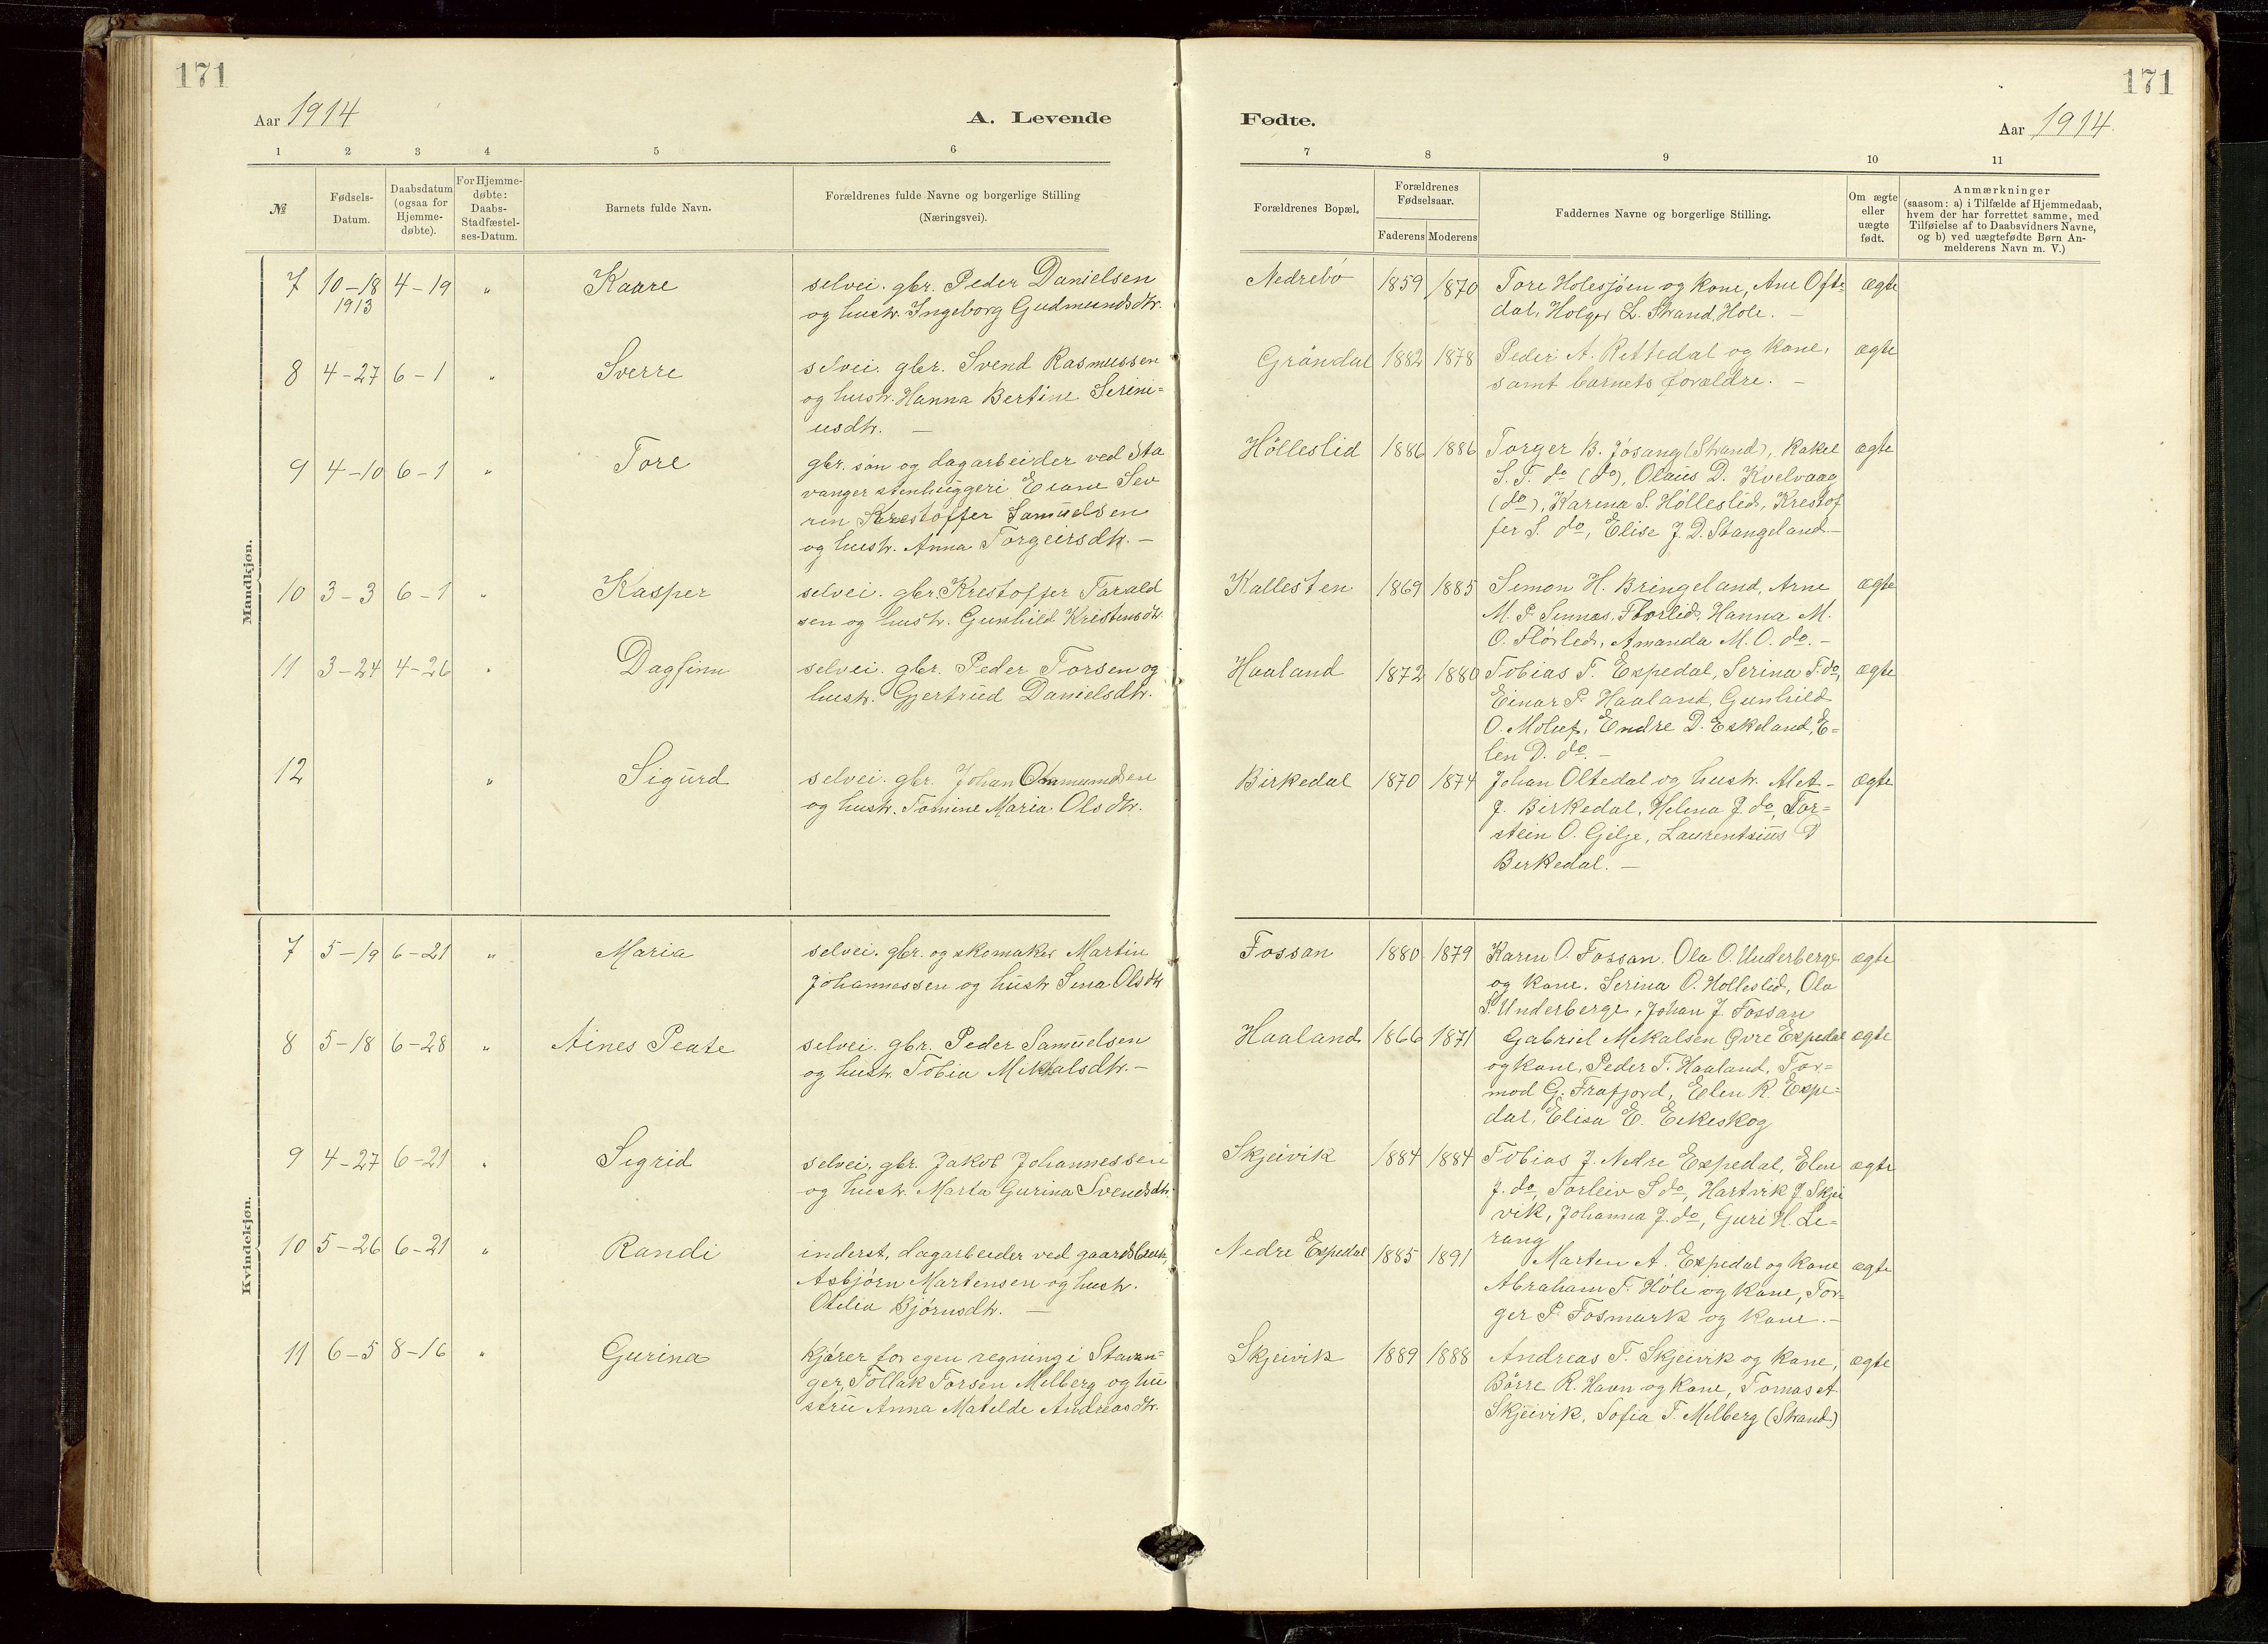 171
171
Aar 1914
A. Levende
Fødte.
Aar 1914.
1 2 3 4 5 6
7 8 9 10 11
№
Fødsels-
Datum.
Daabsdatum
(ogsaa for
Hjemme-
døbte).
For Hjemme-
døbte:
Daabs-
Stadfæstel-
ses-Datum.
Barnets fulde Navn.
Forældrenes fulde Navne og borgerlige Stilling
(Næringsvei).
Forældrenes Bopæl.
Forældrenes
Fødselsaar.
Faderens Moderens
Faddernes Navne og borgerlige Stilling.
Om ægte
eller
uægte
født.
Anmærkninger
(saasom: a) i Tilfælde af Hjemmedaab,
hvem der har forrettet samme, med
Tilføielse af to Daabsvidners Navne,
og b) ved uægtefødte Børn An-
melderens Navn m. V.)
Mandkjøn.
7 10-18 4-19 " Kaare
1913
selvei. gbr. Peder Danielsen
og hustr. Ingeborg Gudmundsdtr.
Nedrebø 1859 1870
Tore Holesjøen og kone, Ane Ofte-
dal, Holger L. Strand, Hole. –
ægte
8 4-27 6-1 " Sverre
selvei. gbr. Svend Rasmussen
og hustr. Hanna Bertine Serini-
usdtr. –
Grøndal 1882 1878
Peder A. Rettedal og kone,
samt barnets forældre. –
ægte
9 4-10 6-1 " Tore
gbr. søn og dagarbeider ved Sta
vanger stenhuggeri Eiane Sev
rin Krestoffer Samuelsen
og hustr. Anna Torgeirsdtr. –
Hølleslid 1886 1886
Torger B. Jøsang (Strand), Rakel
S. T. do (do), Olaus D. Kvelvaag
(do), Karina S. Hølleslid, Krestof
fer S. do, Elise J. D. Stangeland. –
ægte
10 3-3 6-1 " Kasper
selvei. gbr. Krestoffer Tarald
sen og hustr. Gunhild Kristensdtr.
Kallesten 1869 1885
Simon H. Bringeland, Arne
M. P. Sunnes, Florlid, Hanna M.
O. Flörlid, Amanda M. O. do. –
ægte
11 3-24 4-26 " Dagfinn
selvei. gbr. Peder Torsen og
hustr. Gjertrud Danielsdtr.
Haaland 1872 1880
Tobias T. Espedal, Serina T. do,
Einar P. Haaland, Gunhild
O. Moluf, Endre D. Eskeland, E-
len D. do –
ægte
12 " Sigurd
selvei. gbr. Johan Ommundsen
og hustr. Tomine Maria Olsdtr.
Birkedal 1870 1874
Johan Oltedal og hustr. Alet –
J. Birkedal, Helena J. do, Tor-
stein O. Gilje, Laurentsius D
Birkedal. –
ægte
Kvindekjøn.
7 5-19 6-21 " Maria
selvei. gbr. og skomaker Martin
Johannessen og hustr Sina Olsdtr
Fossan 1880 1879
Karen O. Fossan. Ola O. Underberge
og kone. Serina O. Hølleslid, Ola
S. Underberge, Johan J. Fossan
ægte
8 5-18 6-28 " Aines Peate
selvei. gbr. Peder Samuelsen
og hustr. Tobia Mikkalsdtr. –
Haaland 1866 1871
Gabriel Mikalsen Øvre Espedal
og kone, Peder T. Haaland, Tor-
mod G. Frafjord, Elen R. Espe-
dal, Elisa E. Eikeskog
ægte
9 4-27 6-21 " Sigrid
selvei. gbr. Jakob Johannessen
og hustr. Marta Gurina Svendsdtr.
Skjeivik 1884 1884
Tobias J. Nedre Espedal, Elen
J. do, Torleiv S do, Hartvik J. Skjei
vik, Johanna J. do, Guri H. Le-
rang
ægte
10 5-26 6-21 " Randi
inderst, dagarbeider ved gaardsbruk,
Asbjørn Martensen og hustr.
Otelia Bjørnsdtr. –
Nedre Espedal 1885 1891
Marten A. Espedal og kone
Abraham T. Hole og kone, Tor-
ger P. Fosmark og kone. –
ægte
11 6-5 8-16 " Gurina
kjører for egen regning i Stavan-
ger, Tollak Torsen Melberg og hu
stru Anna Matelde Andreasdtr.
Skjeivik 1889 1888
Andreas T. Skjeivik og kone,
Børre R. Havn og kone, Tomas A.
Skjeivik, Sofia T. Melberg (Strand)
ægte